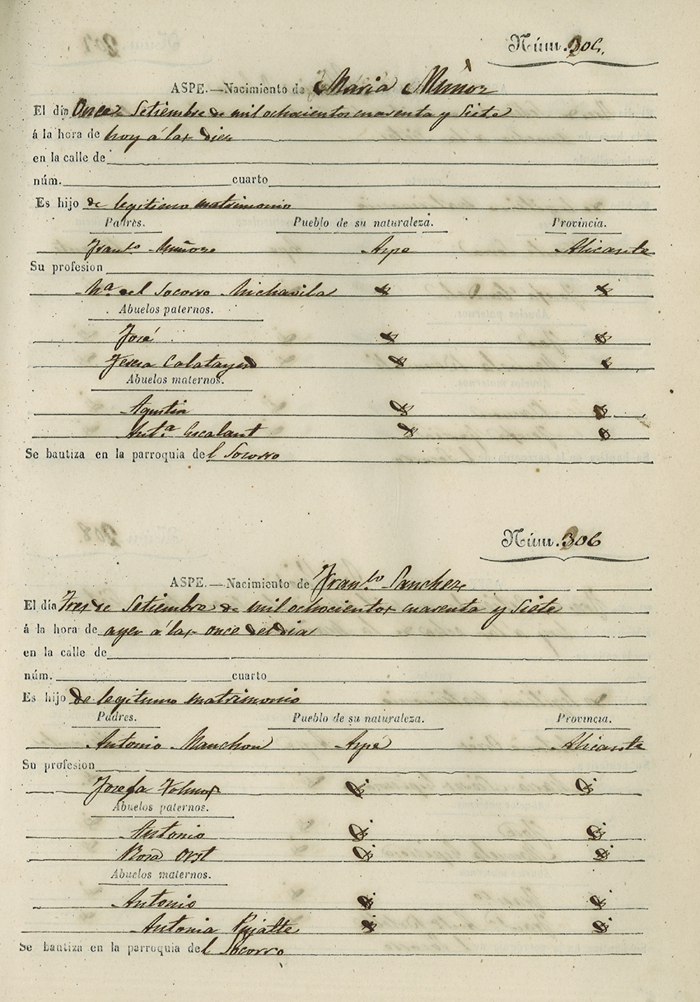 Núm. 306.
ASPE.—Nacimiento de Maria Muñoz
El día Once Setiembre de mil ochocientos cuarenta y Siete
á la hora de hoy á las diez
en la calle de
núm. cuarto
Es hijo de legitimo matrimonio
Padres. Pueblo de su naturaleza. Provincia.
Fran.co Muñoz Aspe Alicante
Su profesion
M.a del Socorro Michavila
Abuelos paternos.
José
Teresa Calatayud
Abuelos maternos.
Agustin
Ant.a Escalant
Se bautiza en la parroquia del Socorro
Núm. 306
ASPE.—Nacimiento de Fran.co Sanchez
El día Tres de Setiembre de mil ochocientos cuarenta y Siete
á la hora de ayer á las once del dia
en la calle de
núm. cuarto
Es hijo de legitimo matrimonio
Padres. Pueblo de su naturaleza. Provincia.
Antonio Manchon Aspe Alicante
Su profesion
Josefa
Abuelos paternos.
Antonio
Rosa
Abuelos maternos.
Antonio
Antonia
Se bautiza en la parroquia del Socorro